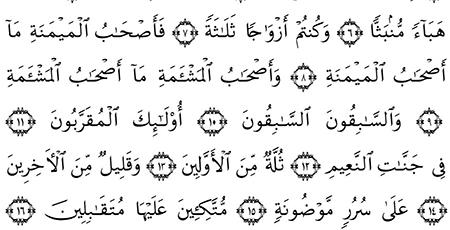 هَبَآءً مُّنۢبَثًّا ﴿٦﴾ وَكُنتُمْ أَزْوَٰجًا ثَلَٰثَةً ﴿٧﴾ فَأَصْحَٰبُ ٱلْمَيْمَنَةِ مَآ
أَصْحَٰبُ ٱلْمَيْمَنَةِ ﴿٨﴾ وَأَصْحَٰبُ ٱلْمَشْـَٔمَةِ مَآ أَصْحَٰبُ ٱلْمَشْـَٔمَةِ
﴿٩﴾ وَٱلسَّٰبِقُونَ ٱلسَّٰبِقُونَ ﴿١٠﴾ أُو۟لَٰٓئِكَ ٱلْمُقَرَّبُونَ ﴿١١﴾
فِى جَنَّٰتِ ٱلنَّعِيمِ ﴿١٢﴾ ثُلَّةٌ مِّنَ ٱلْأَوَّلِينَ ﴿١٣﴾ وَقَلِيلٌ مِّنَ ٱلْـَٔاخِرِينَ
﴿١٤﴾ عَلَىٰ سُرُرٍ مَّوْضُونَةٍ ﴿١٥﴾ مُّتَّكِـِٔينَ عَلَيْهَا مُتَقَٰبِلِينَ ﴿١٦﴾